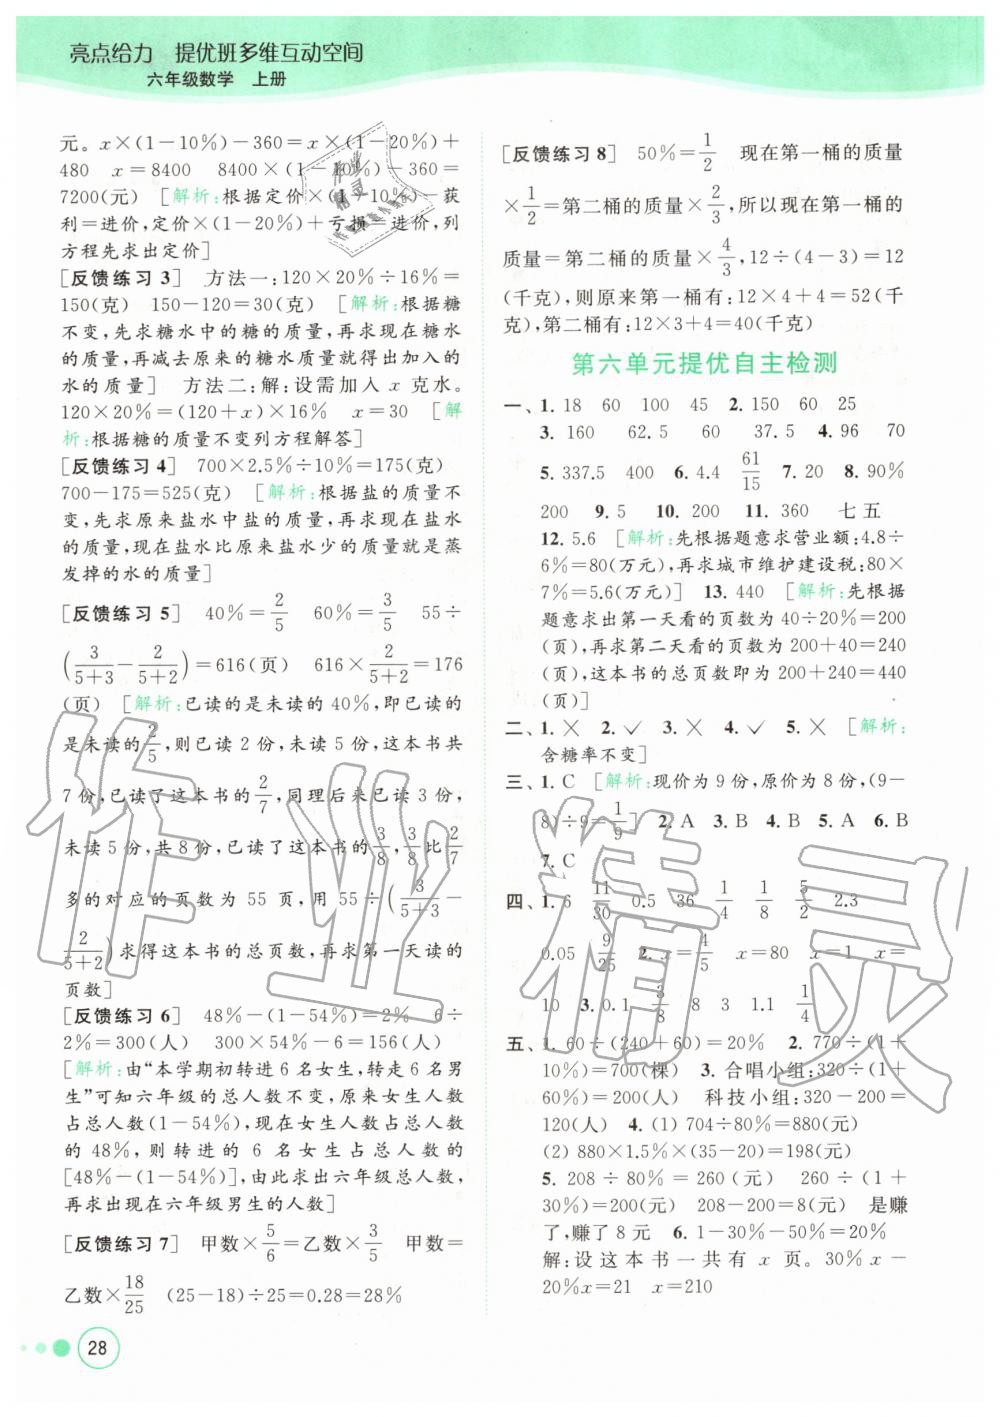 亮点给力 提优班多维互动空间
六年级数学 上册
元。x×(1－10%)－360＝x×(1－20%)＋
480 x＝8400 8400×(1－10%)－360＝
7200(元) [解析:根据定价×(1－10%)－获
利＝进价,定价×(1－20%)＋亏损＝进价,列
方程先求出定价]
[反馈练习 3] 方法一:120×20%÷16%＝
150(克) 150－120＝30(克) [解析:根据糖
不变,先求糖水中的糖的质量,再求现在糖水
的质量,再减去原来的糖水质量就得出加入的
水的质量] 方法二:解:设需加入 x 克水。
120×20%＝(120＋x)×16% x＝30 [解
析:根据糖的质量不变列方程解答]
[反馈练习 4] 700×2.5%÷10%＝175(克)
700－175＝525(克) [解析:根据盐的质量不
变,先求原来盐水中盐的质量,再求现在盐水
的质量,现在盐水比原来盐水少的质量就是蒸
发掉的水的质量]
[反馈练习 5] 40%＝2/5 60%＝3/5 55÷
(3/(5+3)－2/(5+2))＝616(页) 616×2/(5+2)＝176
(页) [解析:已读的是未读的40%,即已读的
是未读的2/5,则已读 2 份,未读 5 份,这本书共
7 份,已读了这本书的2/7,同理后来已读 3 份,
未读 5 份,共 8 份,已读了这本书的3/8,3/8比2/7
多的对应的页数为 55 页,用 55÷(3/(5+3)－
2/(5+2))求得这本书的总页数,再求第一天读的
页数]
[反馈练习 6] 48%－(1－54%)＝2% 6÷
2%＝300(人) 300×54%－6＝156(人)
[解析:由“本学期初转进 6 名女生,转走 6 名男
生”可知六年级的总人数不变,原来女生人数
占总人数(1－54%),现在女生人数占总人数
的 48%,则转进的 6 名女生占总人数的
[48%－(1－54%)],由此求出六年级总人数,
再求出现在六年级男生的人数]
[反馈练习 7] 甲数×5/6＝乙数×3/5 甲数＝
乙数×18/25 (25－18)÷25＝0.28＝28%
[反馈练习 8] 50%＝1/2 现在第一桶的质量
×1/2＝第二桶的质量×2/3,所以现在第一桶的
质量＝第二桶的质量×4/3,12÷(4－3)＝12
(千克),则原来第一桶有:12×4＋4＝52(千
克),第二桶有:12×3＋4＝40(千克)
第六单元提优自主检测
一、1. 18 60 100 45 2. 150 60 25
3. 160 62.5 60 37.5 4. 96 70
5. 337.5 400 6. 4.4 61/15 7. 20 8. 90%
200 9. 5 10. 200 11. 360 七五
12. 5.6 [解析:先根据题意求营业额:4.8÷
6%＝80(万元),再求城市维护建设税:80×
7%＝5.6(万元)] 13. 440 [解析:先根据
题意求出第一天看的页数为 40÷20%＝200
(页),再求第二天看的页数为 200＋40＝240
(页),这本书的总页数即为 200＋240＝440
(页)]
二、1. × 2. ✓ 3. ✓ 4. ✓ 5. × [解析:
含糖率不变]
三、1. C [解析:现价为 9 份,原价为 8 份,(9－
8)÷9＝1/9] 2. A 3. B 4. B 5. A 6. B
7. C
四、1. 6 11/30 0.5 36 1/4 1/8 5/2 2.3
0.05 9/25 2. x＝4/5 x＝80 x＝1 x＝
10 3. 0.1 3/8 8 3 1.1 1/4
五、1. 60÷(240＋60)＝20% 2. 770÷(1＋
10%)＝700(棵) 3. 合唱小组:320÷(1＋
60%)＝200(人) 科技小组:320－200＝
120(人) 4. (1) 704÷80%＝880(元)
(2) 880×1.5%×(35－20)＝198(元)
5. 208÷80%＝260(元) 260÷(1＋
30%)＝200(元) 208－200＝8(元) 是赚
了,赚了 8 元 6. 1－30%－50%＝20%
解:设这本书一共有 x 页。30%x－
20%x＝21 x＝210
28
作业精灵